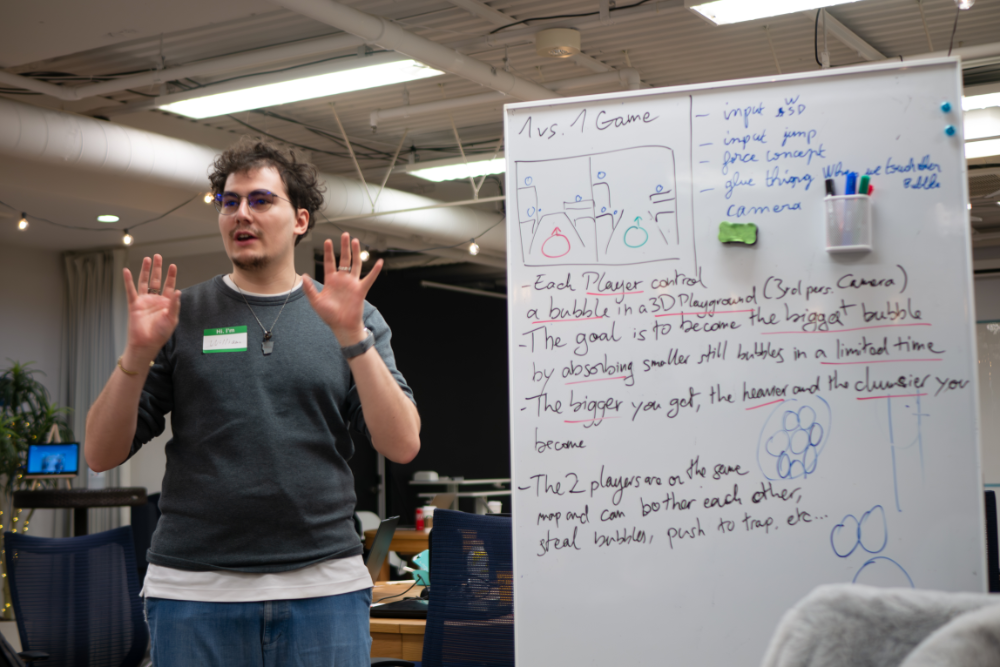 HI, I'M
1 vs. 1 Game
- input WSD
- input jump
- force concept
- glue thiong When we touch other
Bubble
camera
- Each Player control
a bubble in a 3D Playground (3rd pers. Camera)
- The goal is to become the biggest bubble
by absorbing smaller still bubbles in a limited time
- The bigger you get, the heavier and the clumsier you
become
- The 2 players are on the same
map and can bother each other,
steal bubbles, push to trap, etc...